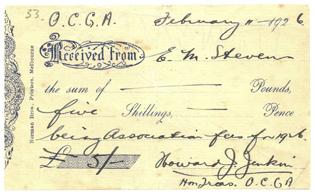 53. O.C.G.A. February 11 - 1926
Received from E. M. Steven
the sum of — Pounds,
five Shillings, — Pence
being Association fees for 1926
£ - 5/- Howard J. Jenkin
Hon Treas. O.C.G.A
Norman Bros., Printers, Melbourne